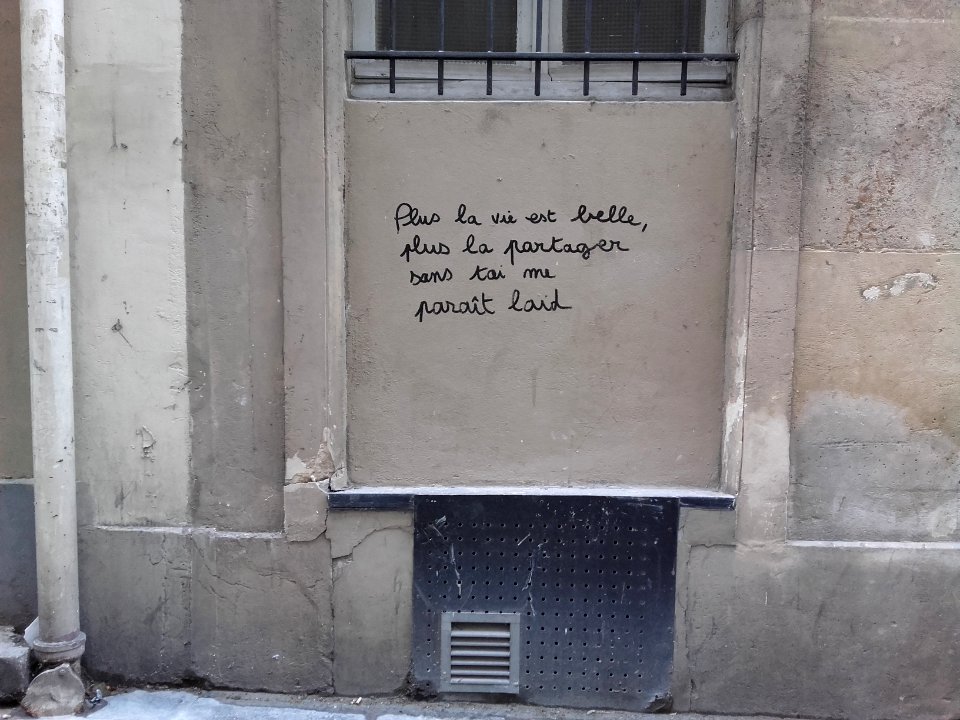 Plus la vie est belle,
plus la partager
sans toi me
paraît laid